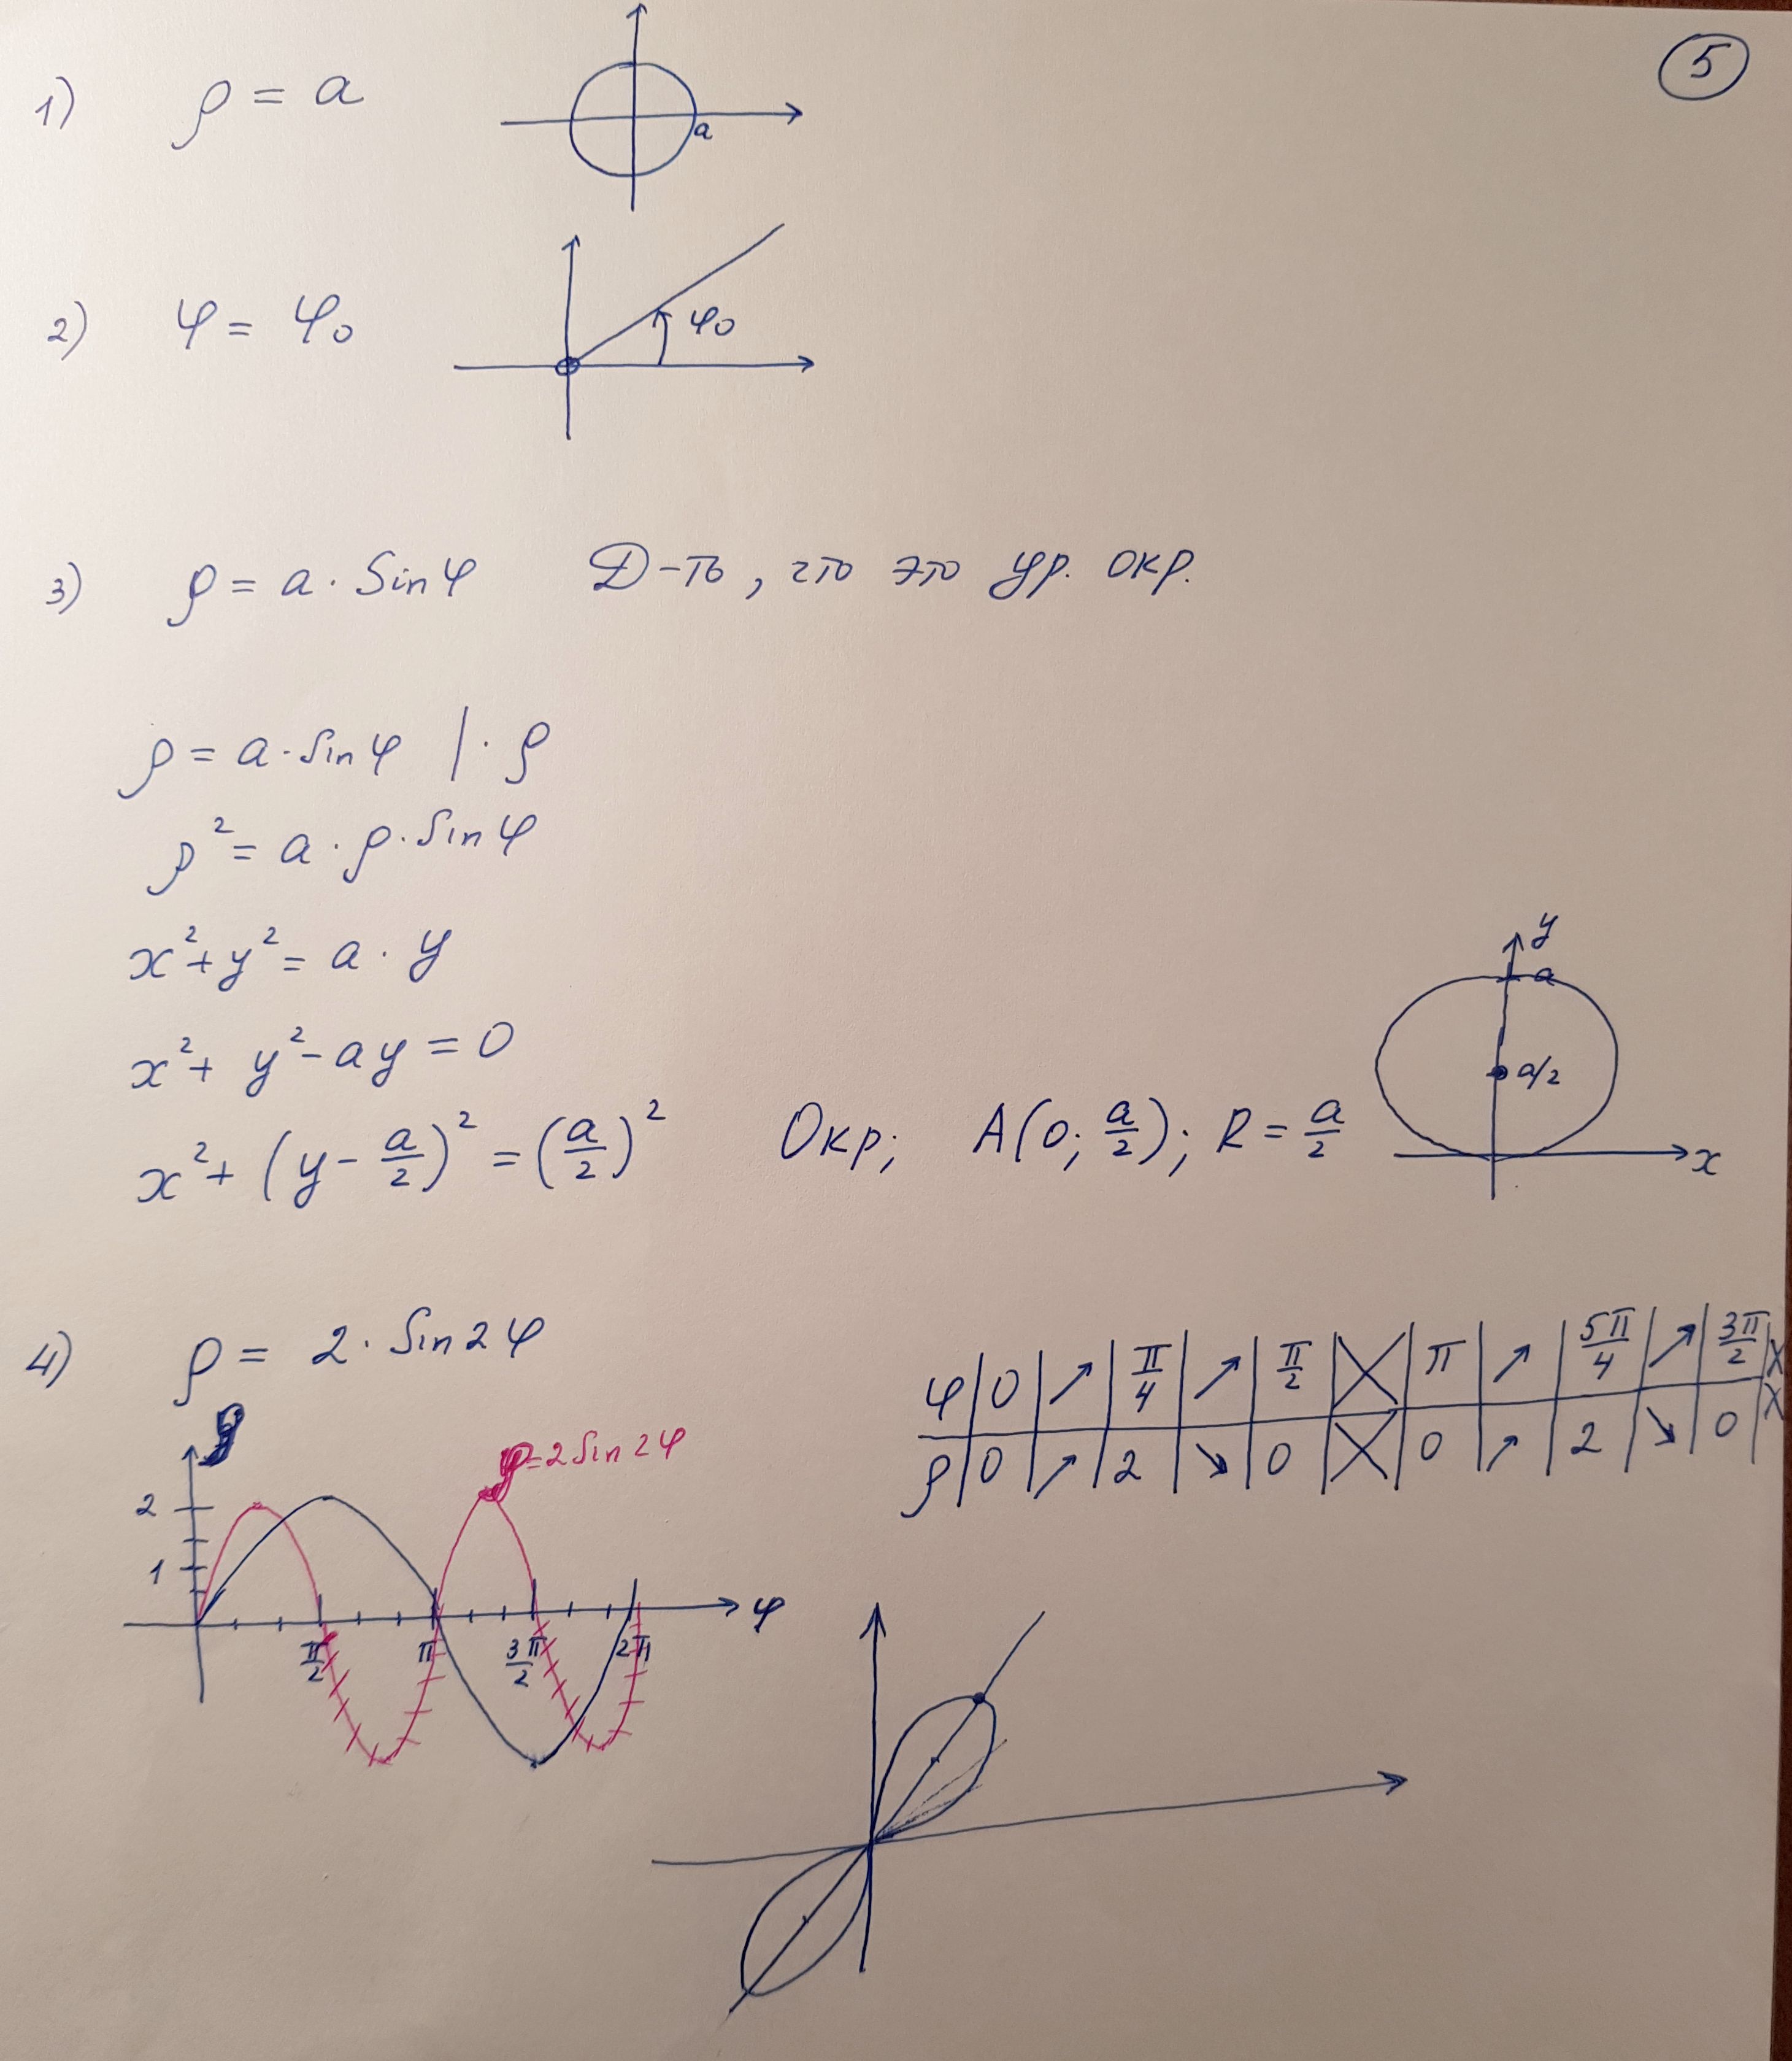 5
1) ρ = a
a
2) φ = φ₀
φ₀
3) ρ = a · Sin φ Д-ть, что это ур. окр.
ρ = a · Sin φ | · ρ
ρ² = a · ρ · Sin φ
x² + y² = a · y
x² + y² - ay = 0
x² + (y - a/2)² = (a/2)² Окр; A(0; a/2); R = a/2
y
a
a/2
x
4) ρ = 2 · Sin 2φ
φ | 0 | ↗ | π/4 | ↗ | π/2 | X | π | ↗ | 5π/4 | ↗ | 3π/2 | X
ρ | 0 | ↗ | 2 | ↘ | 0 | X | 0 | ↗ | 2 | ↘ | 0 | X
= 2 Sin 2φ
2
1
π/2 π 3π/2 2π φ